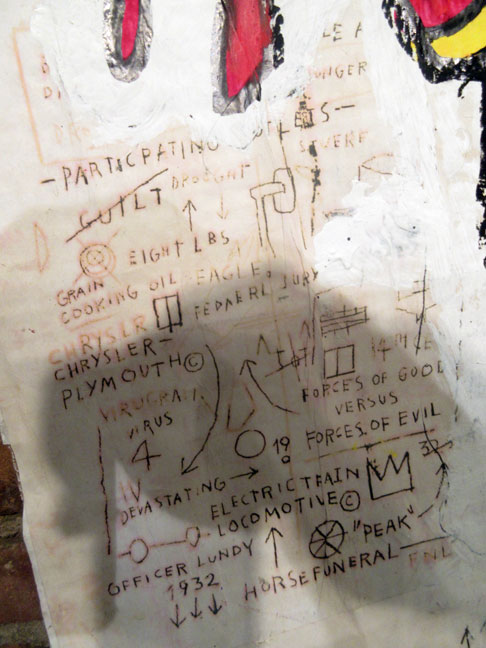 —PARTICPATING OUTLETS—
SEVERE
GUILT
DROUGHT
EIGHT LBS
GRAIN
COOKING OIL-EAGLE.
FEDAERL JURY
CHRYSLR
CHRYSLER—
PLYMOUTH©
VIRUS
4
IV
FORCES OF GOOD
VERSUS
FORCES.OF EVIL
19
DEVASTATING
ELECTRIC TRAIN
LOCOMOTIVE©
"PEAK"
OFFICER LUNDY
1932
HORSE FUNERAL